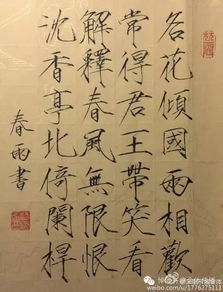 名花傾國雨相歡
常得君王帶笑看
解釋春風無限恨
沈香亭北倚闌桿
春雨書